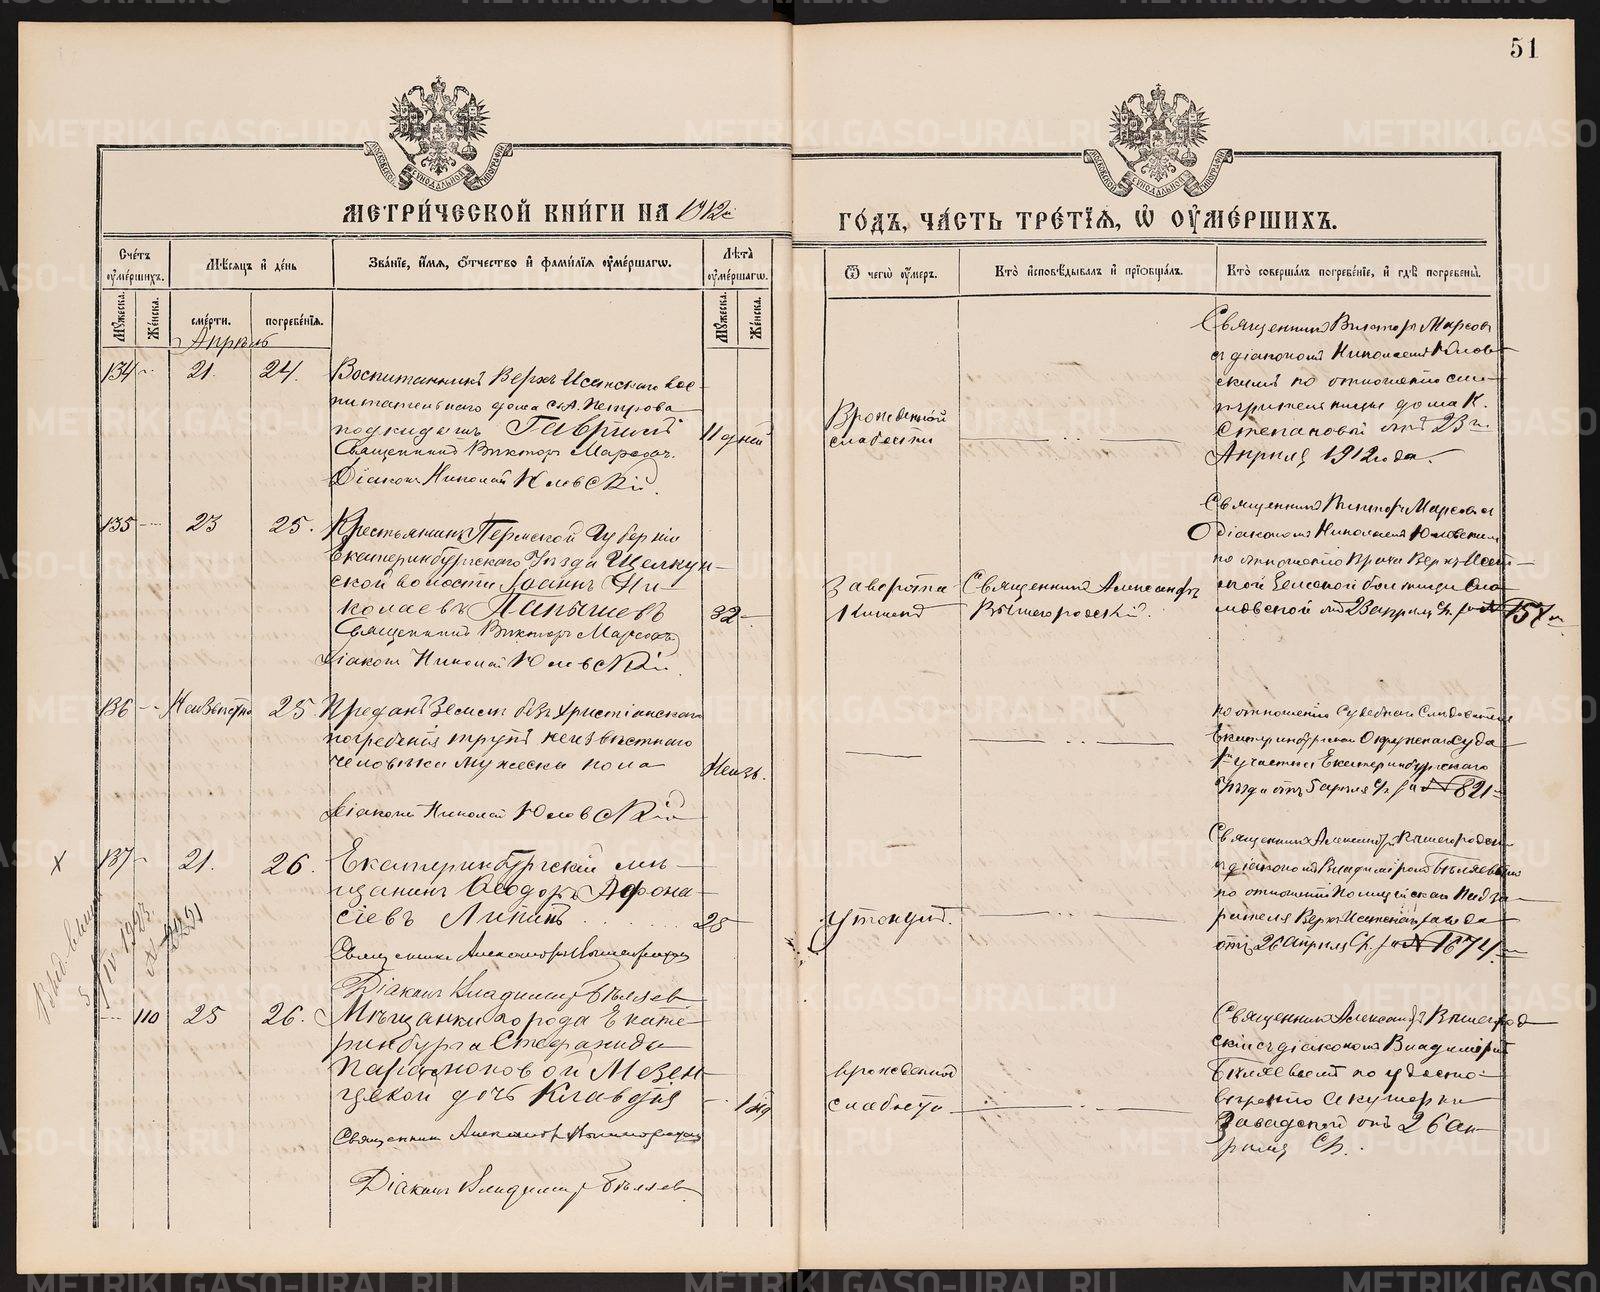 51
МЕТРИ́ЧЕСКОЙ КНИ́ГИ НА 1912й
ГО́ДЪ, ЧА́СТЬ ТРЕ́ТЇѦ, Ѡ҆ ОУ҆МЕ́РШИХЪ.
Сче́тъ оу҆ме́ршихъ.
Мѣ́сѧцъ и҆ де́нь
Зва́нїе, и҆́мѧ, ѻ҆́тчество и҆ фами́лїѧ оу҆ме́ршагѡ.
Лѣ́та оу҆ме́ршагѡ.
Ѿ чегѡ̀ оу҆́меръ.
Кто̀ и҆сповѣ́дывалъ и҆ прїѡбща́лъ.
Кто̀ соверша́лъ погребе́нїе, и҆ гдѣ̀ погребены̀.
Мꙋ́жеска.
Же́нска.
сме́рти.
погребе́нїѧ.
Мꙋ́жеска.
Же́нска.
Апрѣль
134 21. 24.
Воспитанникъ Верхъ Исетскаго вос-
питательнаго дома
подкидышъ Гавріилъ
Священникъ Викторъ
Діаконъ Николай
11 дней
Врожденной
слабости
Священникъ Викторъ
съ діакономъ Николаемъ
по отношенію смо-
трительницы дома К.
Степановой отъ 23го
Апрѣля 1912 года.
135 23 25.
Крестьянинъ Пермской Губерніи
Екатеринбургскаго Уѣзда Щелкун-
ской волости Іоаннъ Ни-
колаевъ Панышевъ
Священникъ Викторъ
Діаконъ Николай
32
Заворота
Кишекъ
Священникъ Александръ
Вышегородскій.
Священникъ Викторъ
Діакономъ Николаемъ
по отношенію Врача Верхъ Исет-
ской Земской больницы
отъ 23 апрѣля с/г за № 157
136 Неизвѣстно 25
Преданъ Землѣ безъ христіанскаго
погребенія трупъ неизвѣстнаго
человѣка мужеска пола
Неизв.
Діаконъ Николай
по отношенію Судебнаго Слѣдователя
Екатеринбургскаго Окружнаго Суда
участка Екатеринбургскаго
Уѣзда отъ 5 апрѣля с/г за № 821
137 21. 26.
Екатеринбургскій мѣ-
щанинъ Ѳеодоръ Афона-
сіевъ Липинъ
28
Священникъ Александръ Вышегородскій
Діаконъ Владиміръ Бѣляевъ
Утонулъ.
Священникъ Александръ Вышегородскій
съ діакономъ Владиміромъ Бѣляевымъ
по отношенію Полицейскаго Надзи-
рателя Верхъ Исетскаго завода
отъ 26 апрѣля с/г за № 1674
110 25 26.
Мѣщанки города Екате-
ринбурга Стефаниды
Парамоновой Мезен-
цевой дочь Клавдія
Священникъ Александръ Вышегородскій
Діаконъ Владиміръ Бѣляевъ
врожденной
слабости
Священникъ Александръ Вышегород-
скій съ діакономъ Владиміромъ
Бѣляевымъ по удосто-
вѣренію акушерки
Завадской отъ 26 ап-
рѣля с/г.
METRIKI.GASO-URAL.RU